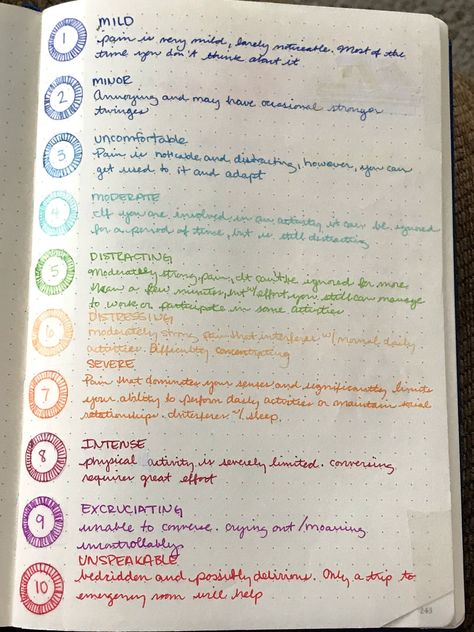 1 MILD
Pain is very mild, barely noticeable. Most of the
time you don't think about it
2 MINOR
Annoying and may have occasional stronger
twinges
3 UNCOMFORTABLE
Pain is noticable and distracting, however, you can
get used to it and adapt
4 MODERATE
If you are involved in an activity it can be ignored
for a period of time, but is still distracting
5 DISTRACTING
moderately strong pain, It can't be ignored for more
than a few minutes, but w/ effort you still can manage
to work or participate in some activities
6 DISTRESSING
moderately strong pain that interferes w/ normal daily
activities. Difficulty concentrating
7 SEVERE
Pain that dominates your senses and significantly limits
your ability to perform daily activities or maintain social
relationships. Interferes w/ sleep.
8 INTENSE
physical activity is severely limited. conversing
requires great effort
9 EXCRUCIATING
unable to converse. crying out/moaning
uncontrollably
10 UNSPEAKABLE
bedridden and possibly delirious. Only a trip to
emergency room will help
243